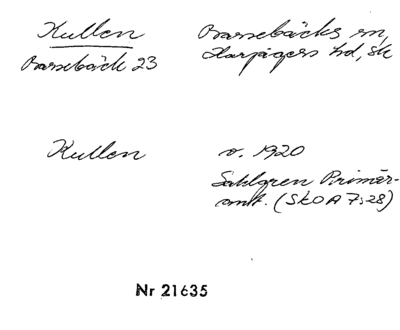 Kullen
Barsebäck 23
Barsebäcks sn,
Harjagers hd, Sk
Kullen
v. 1920
Sahlgren Primär-
ant. (SkOA 7:28)
Nr 21635